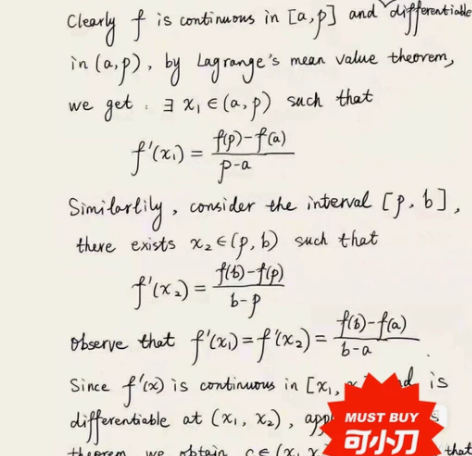 Clearly f is continuous in [a,p] and differentiable
in (a,p), by Lagrange's mean value theorem,
we get. ∃ x₁ ∈ (a,p) such that
f'(x₁) = (f(p)-f(a))/(p-a)
Similarlily, consider the interval [p, b],
there exists x₂ ∈ (p, b) such that
f'(x₂) = (f(b)-f(p))/(b-p)
observe that f'(x₁) = f'(x₂) = (f(b)-f(a))/(b-a)
Since f'(x) is continuous in [x₁, is
differentiable at (x₁, x₂),
theorem we obtain c∈(x, x that
MUST BUY
可小刀